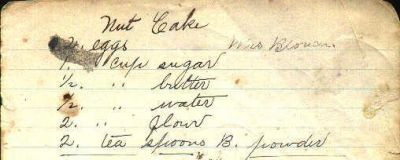 Nut Cake
2. eggs Mrs
1. cup sugar
½ " butter
½ " water
2. " flour
2. tea spoons B. powder